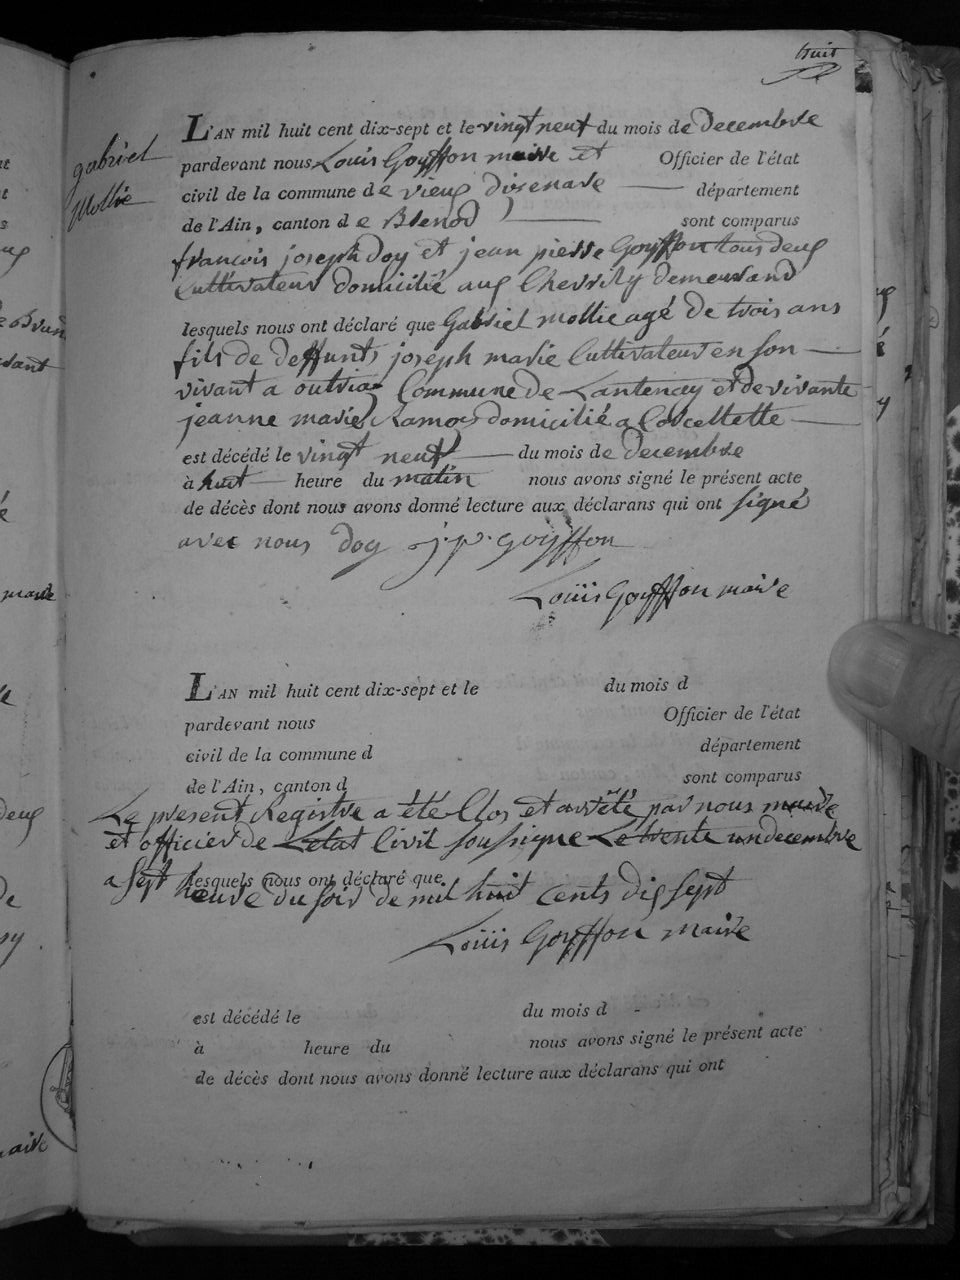 huit
gabriel
Mollie
L'AN mil huit cent dix-sept et le vingt neuf du mois de decembre
pardevant nous Louis Goyffon maire et Officier de l'état
civil de la commune de vieux disenave département
de l'Ain, canton de Brenod sont comparus
francois joseph Doy et jean pierre Goyffon tous deux
Cultivateur domicilié aux Chevrily demeurand
lesquels nous ont déclaré que Gabriel mollie agé de trois ans
fils de deffunts joseph marie Cultivateur en son
vivant a outriaz Commune de Lantenay et de vivante
jeanne marie Ramoy domicilié a Corcellette
est décédé le vingt neuf du mois de decembre
à huit heure du matin nous avons signé le présent acte
de décès dont nous avons donné lecture aux déclarans qui ont signé
avec nous Doy j.p. goyffon
Loüis Goyffon maire
L'AN mil huit cent dix-sept et le du mois d
pardevant nous Officier de l'état
civil de la commune d département
de l'Ain, canton d sont comparus
Le present Registre a été Clos et arrêté par nous maire
et officier de L'etat Civil soussigne Le trente un decembre
a sept lesquels nous ont déclaré que
heure du soir de mil huit cents dix sept
Loüis Goyffon maire
est décédé le du mois d
à heure du nous avons signé le présent acte
de décès dont nous avons donné lecture aux déclarans qui ont